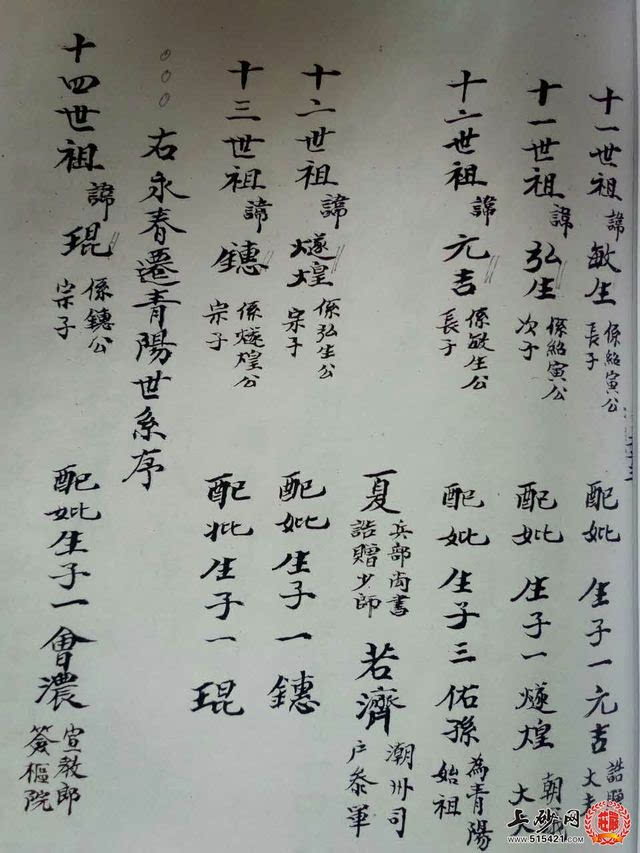 十一世祖 諱敏生 係紹寅公長子 配妣 生子一元吉 誥贈大夫
十一世祖 諱弘生 係紹寅公次子 配妣 生子一燧煌 朝大
十二世祖 諱元吉 係敏生公長子 配妣 生子三佑孫 為青陽始祖
夏 兵部尚書誥贈少師 若濟 潮州司戶叅軍
十二世祖 諱燧煌 係弘生公宗子 配妣 生子一鏸
十三世祖 諱鏸 係燧煌公宗子 配妣 生子一琨
○○○右永春遷青陽世系序
十四世祖 諱琨 係鏸公宗子 配妣 生子一會濃 宣教郎簽樞院
上砂网
www.515421.com